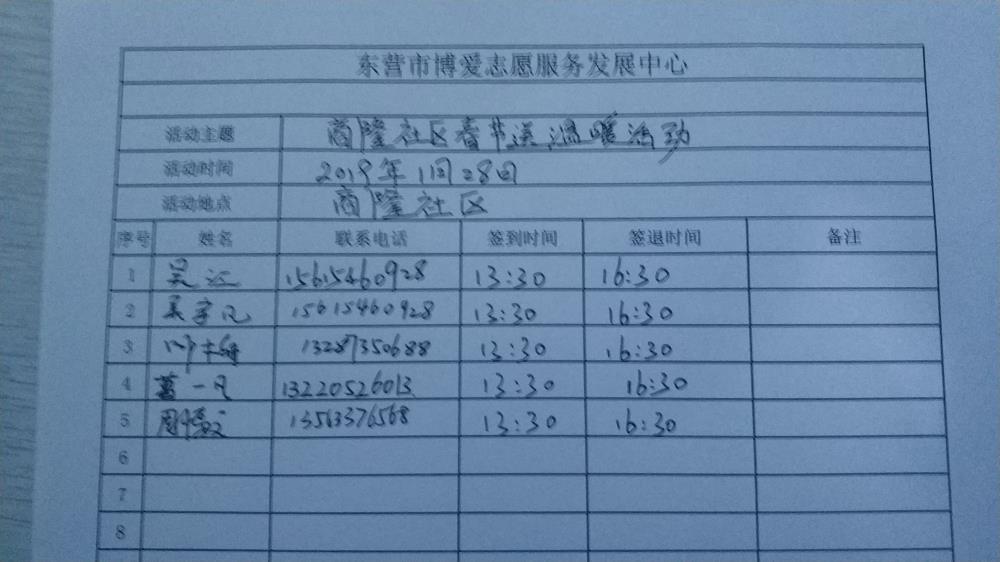 东营市博爱志愿服务发展中心
活动主题 商隆社区春节送温暖活动
活动时间 2019年1月28日
活动地点 商隆社区
序号 姓名 联系电话 签到时间 签退时间 备注
1 吴江 15615460928 13:30 16:30
2 吴宇凡 15615460928 13:30 16:30
3 13287350688 13:30 16:30
4 葛一凡 13220526013 13:30 16:30
5 周 13563376568 13:30 16:30
6
7
8